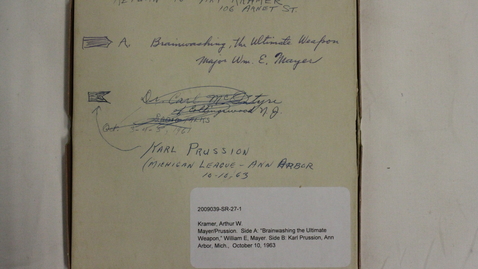 RETURN TO ART KRAMER
106 ARNET ST.
A. Brainwashing, the Ultimate Weapon
Major Wm. E. Mayer
Dr. Carl McIntyre
of Collingswood N.J.
Oct.
KARL PRUSSION
MICHIGAN LEAGUE - ANN ARBOR
10-10-63
2009039-SR-27-1
Kramer, Arthur W.
Mayer/Prussion. Side A: "Brainwashing the Ultimate
Weapon," William E. Mayer. Side B: Karl Prussion, Ann
Arbor, Mich., October 10, 1963